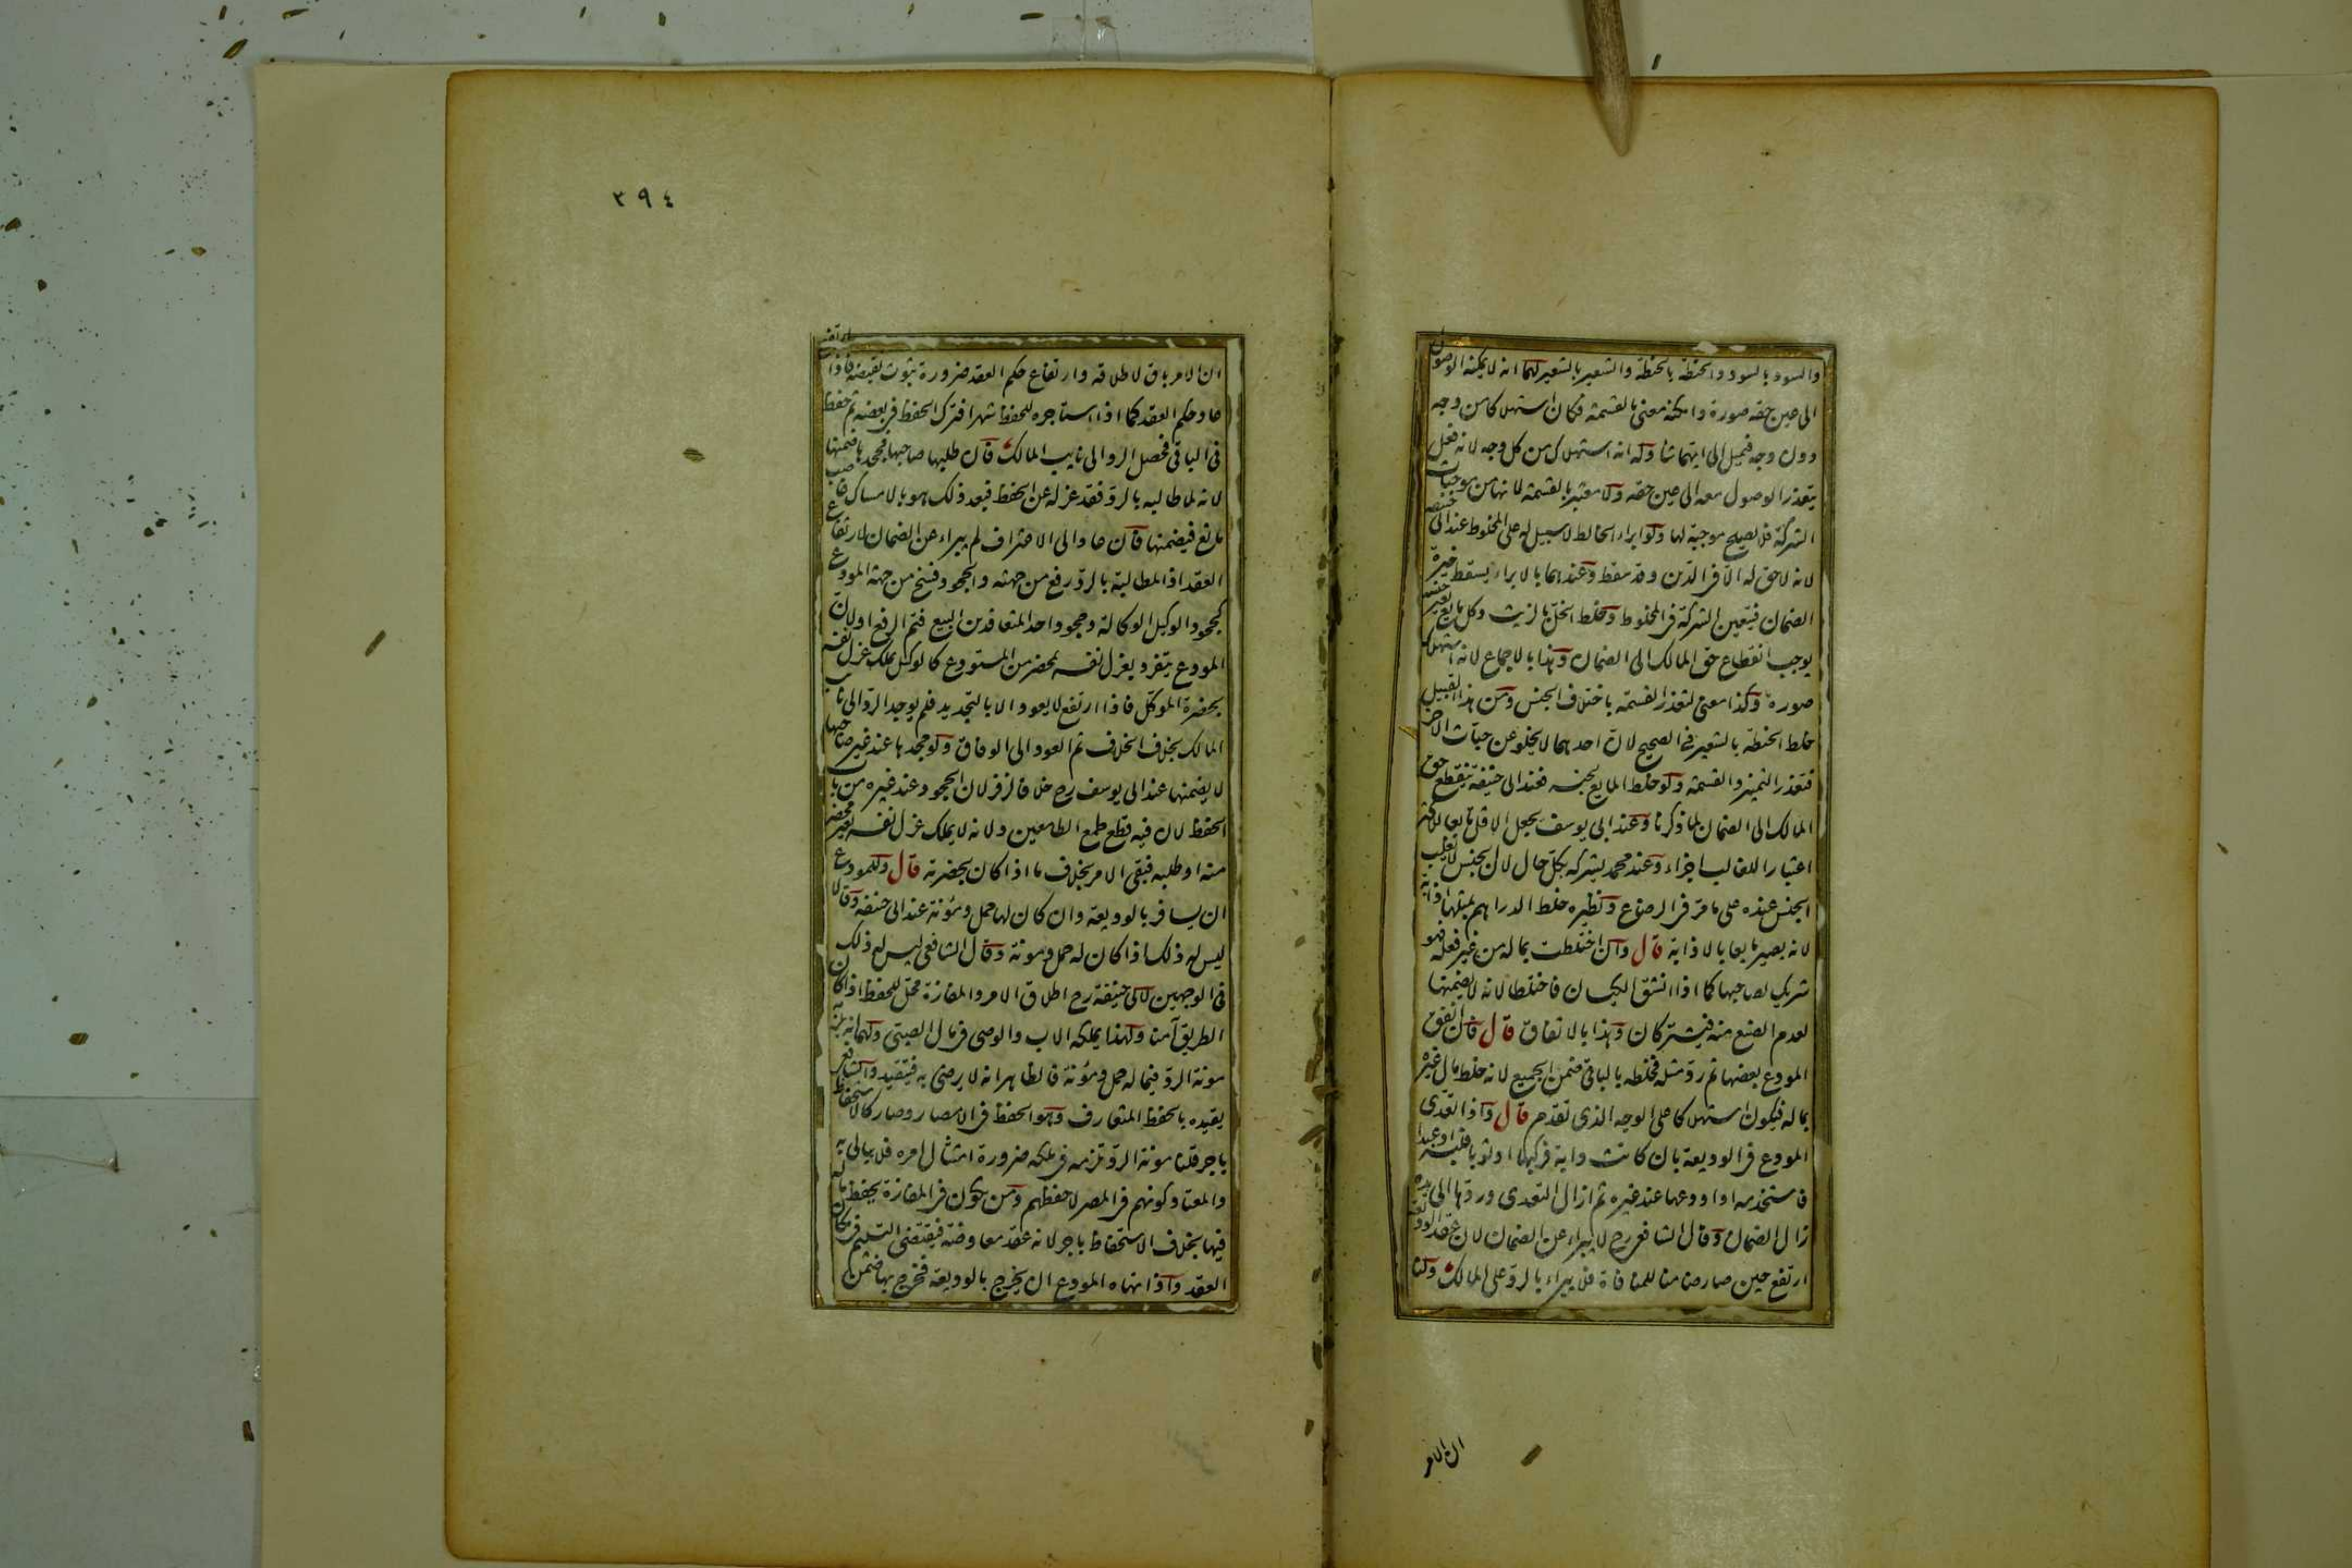 والسود بالسود والحنطة بالحنطة والشعير بالشعير لهما انه لا يمكنه الوصول
الى عين حقه صورة وامكنه معنى بالقسمة فكان استهلاكا من وجه
دون وجه فيميل الى ايهما شاء وله انه استهلاك من كل وجه لانه فعل
يتعذر الوصول معه الى عين حقه ولا معتبر بالقسمة لانها من موجبات
الشركة فلا يصلح موجبة لها ولو ابراء الخالط لا سبيل له على المخلوط عند ابى حنيفه
لانه لا حق له الا فى الدين وقد سقط وعندهما بالابراء يسقط خيرة
الضمان فيتعين الشركة فى المخلوط وخلط الخل بالزيت وكل مايع بغير جنسه
يوجب انقطاع حق المالك الى الضمان وهذا بالاجماع لانه استهلاك
صورة وكذا معنى لتعذر القسمة باختلاف الجنس ومن هذا القبيل
خلط الحنطة بالشعير فى الصحيح لان احدهما لا يخلو عن حبات الاخر
فتعذر التميز والقسمة ولو خلط المايع بجنسه فعند ابى حنيفة ينقطع حق
المالك الى الضمان لما ذكرنا وعند ابى يوسف يجعل الاقل تابعا للاكثر
اعتبارا للغالب اجزاء وعند محمد يشركه بكل حال لان الجنس لا يغلب
الجنس عنده على ما مر فى الرضاع ونظيره خلط الدراهم بمثلها اذابة
لانه يصير مايعا بالاذابة قال وان اختلطت بماله من غير فعله فهو
شريك لصاحبها كما اذا انشق الكيسان فاختلطا لانه لا يضمنها
لعدم الصنع منه فيشتركان وهذا بالاتفاق قال فان انفق
المودع بعضها ثم رد مثله فخلطه بالباقى ضمن الجميع لانه خلط مال غيره
بماله فيكون استهلاكا على الوجه الذى تقدم قال واذا تعدى
المودع فى الوديعة بان كانت دابة فركبها او ثوبا فلبسه او عبدا
فاستخدمه او اودعها عند غيره ثم ازال التعدى وردها الى يده
زال الضمان وقال الشافعى رح لا يبراء عن الضمان لان عقد الوديعة
ارتفع حين صار ضامنا للمنافاة فلا يبراء بالرد على المالك ولنا
ان الامر
٣٩٤
ان الامر باق لاطلاقه وارتفاع حكم العقد ضرورة ثبوت نقيضه فاذا ارتفع
عاد حكم العقد كما اذا استاجره للحفظ شهرا فترك الحفظ فى بعضه ثم حفظ
فى الباقى فحصل الرد الى نايب المالك قال فان طلبها صاحبها فجحدها ضمنها
لانه لما طالبه بالرد فقد عزله عن الحفظ فبعد ذلك هو بالامساك غاصب
مانع فيضمنها فان عاد الى الاعتراف لم يبراء عن الضمان لارتفاع
العقد اذ المطالبة بالرد رفع من جهته والجحود فسخ من جهة المودع
كجحود الوكيل الوكالة وجحود احد المتعاقدين البيع فتم الرفع او لان
المودع يتفرد بعزل نفسه بمحضر من المستودع كالوكيل يملك عزل نفسه
بحضرة الموكل فاذا ارتفع لا يعود الا بالتجديد فلم يوجد الرد الى نائب
المالك بخلاف الخلاف ثم العود الى الوفاق ولو جحدها عند غير صاحبها
لا يضمنها عند ابى يوسف رح خلافا لزفر لان الجحود عند غيره من باب
الحفظ لان فيه قطع طمع الطامعين ولانه لا يملك عزل نفسه بغير محضر
منه او طلبه فبقى الامر بخلاف ما اذا كان بحضرته قال وللمودع
ان يسافر بالوديعة وان كان لها حمل ومؤنة عند ابى حنيفه وقالا
ليس له ذلك اذا كان له حمل ومونة وقال الشافعى ليس له ذلك
فى الوجهين لابى حنيفة رح اطلاق الامر والمفازة محل للحفظ اذا كان
الطريق آمنا ولهذا يملكه الاب والوصى فى مال الصبى ولهما انه يلزمه
مونة الرد فيما له حمل ومؤنة فالظاهر انه لا يرضى به فيتقيد والشافعى
يقيده بالحفظ المتعارف وهو الحفظ فى الامصار وصار كالاستحفاظ
باجر قلنا مونة الرد تلزمه فى ملكه ضرورة امتثال امره فلا يبالى به
والمعتاد كونهم فى المصر لا حفظهم ومن يكون فى المفازة يحفظ ماله
فيها بخلاف الاستحفاظ باجر لانه عقد معاوضة فيقتضى التسليم فى مكان
العقد واذا نهاه المودع ان يخرج بالوديعة فخرج بها ضمن